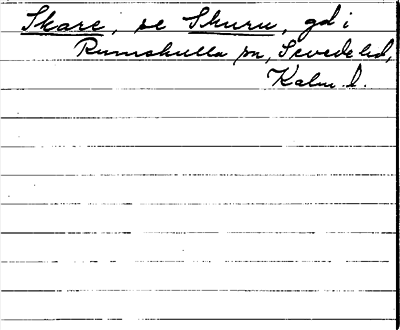 Skare, se Skuru, gd i
Rumskulla sn, Sevede hd,
Kalm. l.